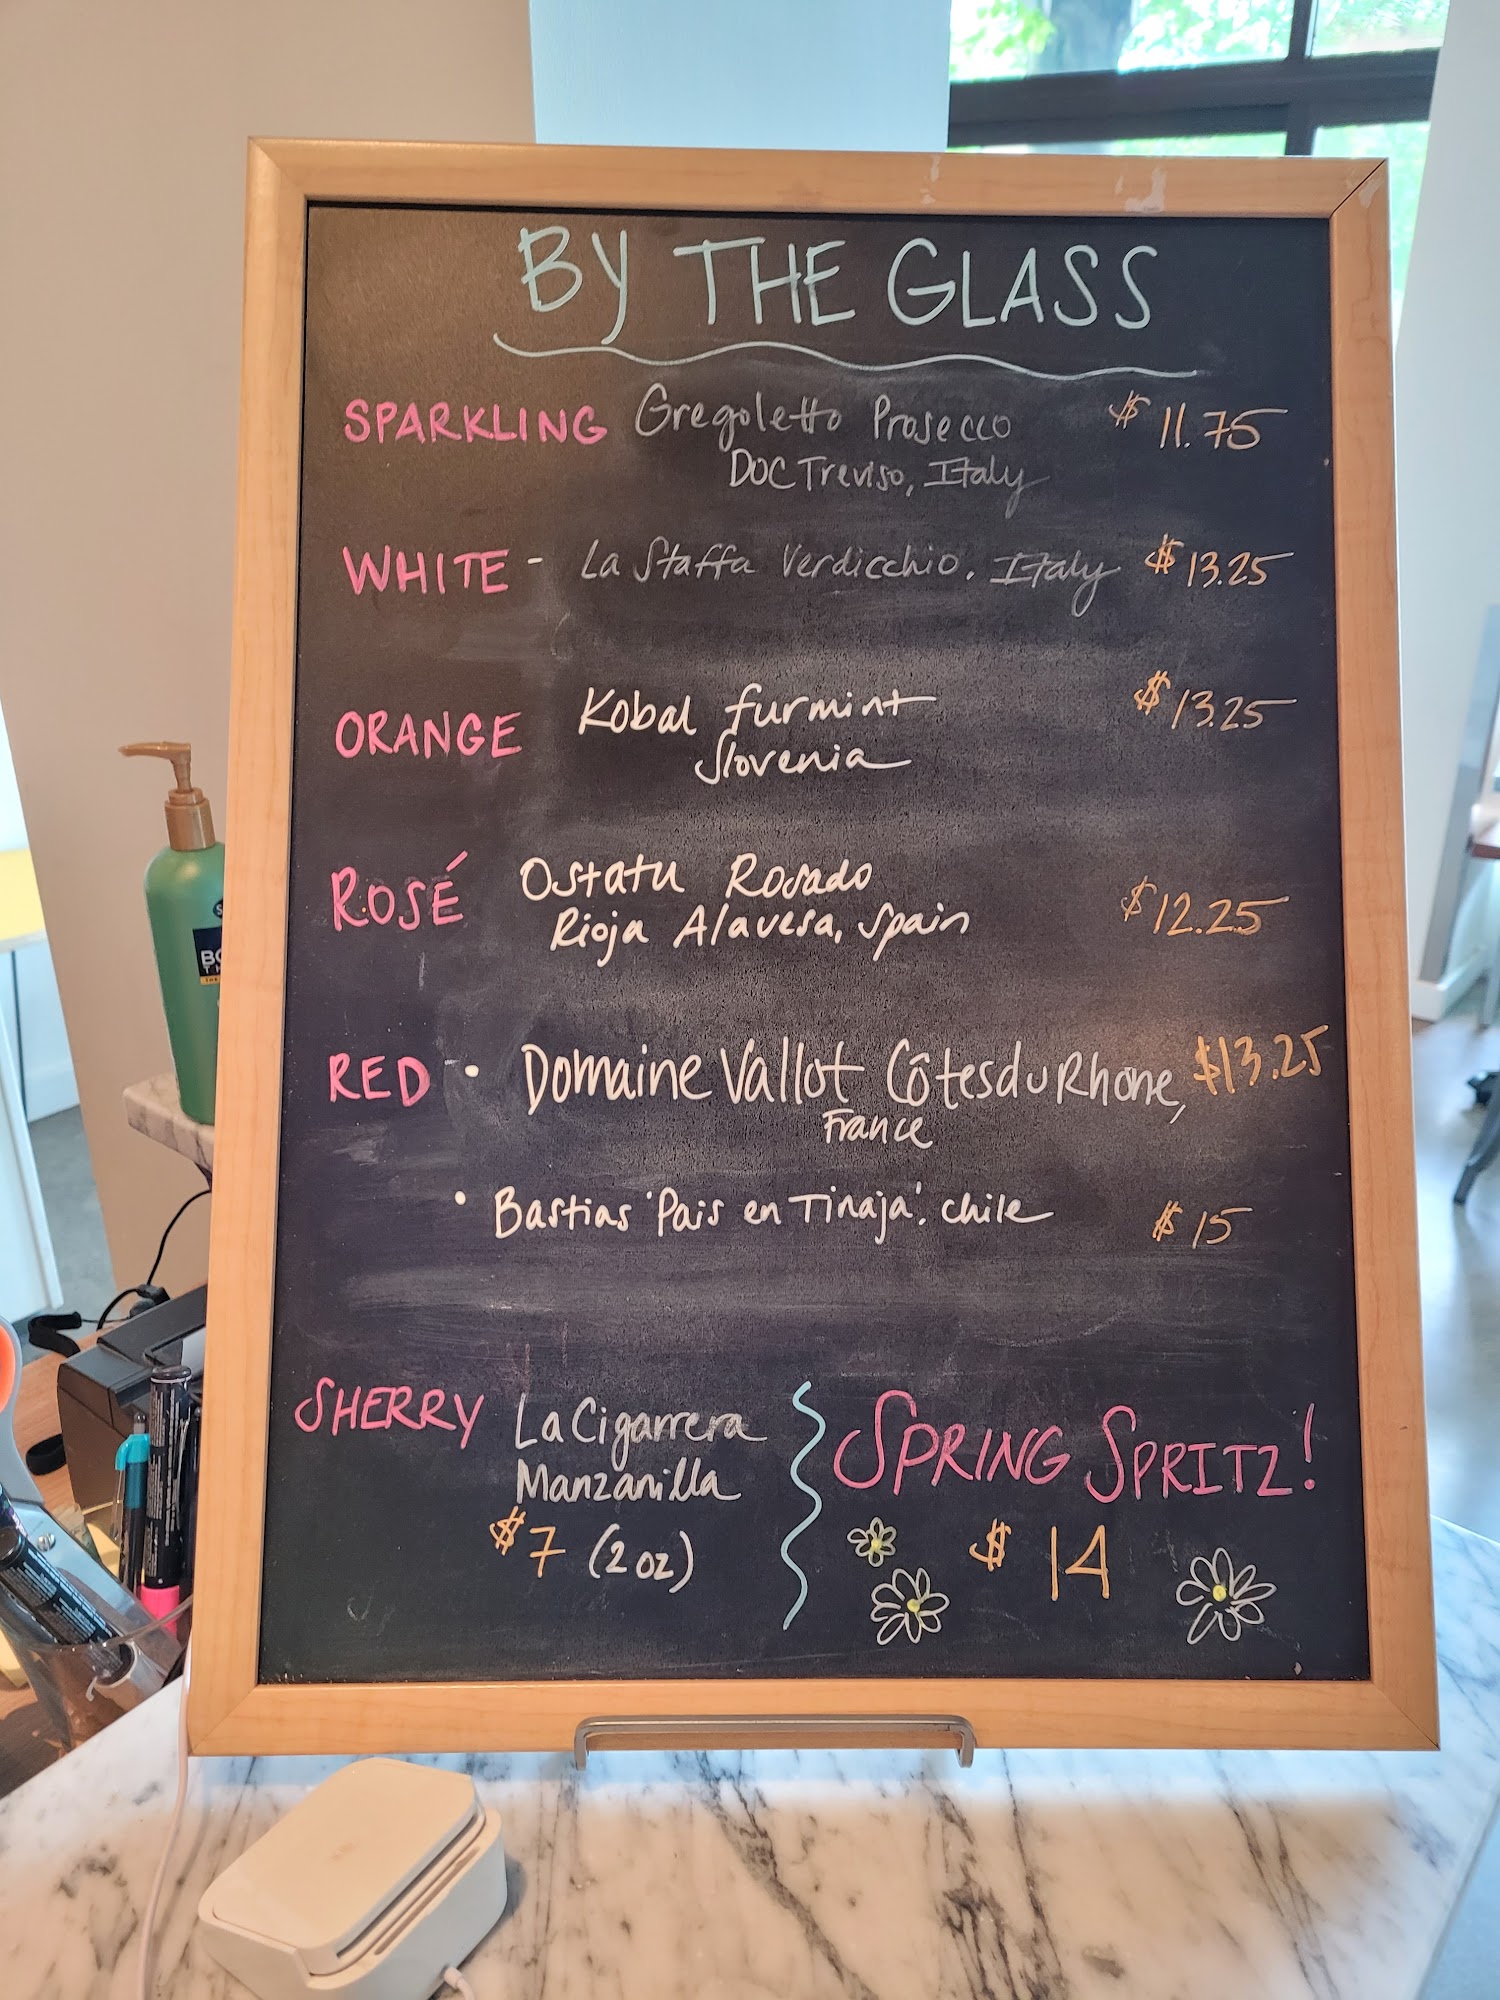 BY THE GLASS
SPARKLING Gregoletto Prosecco $11.75
DOC Treviso, Italy
WHITE - La Staffa Verdicchio. Italy $13.25
ORANGE Kobal furmint $13.25
Slovenia
ROSÉ Ostatu Rosado $12.25
Rioja Alavesa, Spain
RED • Domaine Vallot Côtes du Rhone, $13.25
France
• Bastias 'Pais en Tinaja'. Chile $15
SHERRY La Cigarrera
Manzanilla
$7 (2 oz)
SPRING SPRITZ!
$14